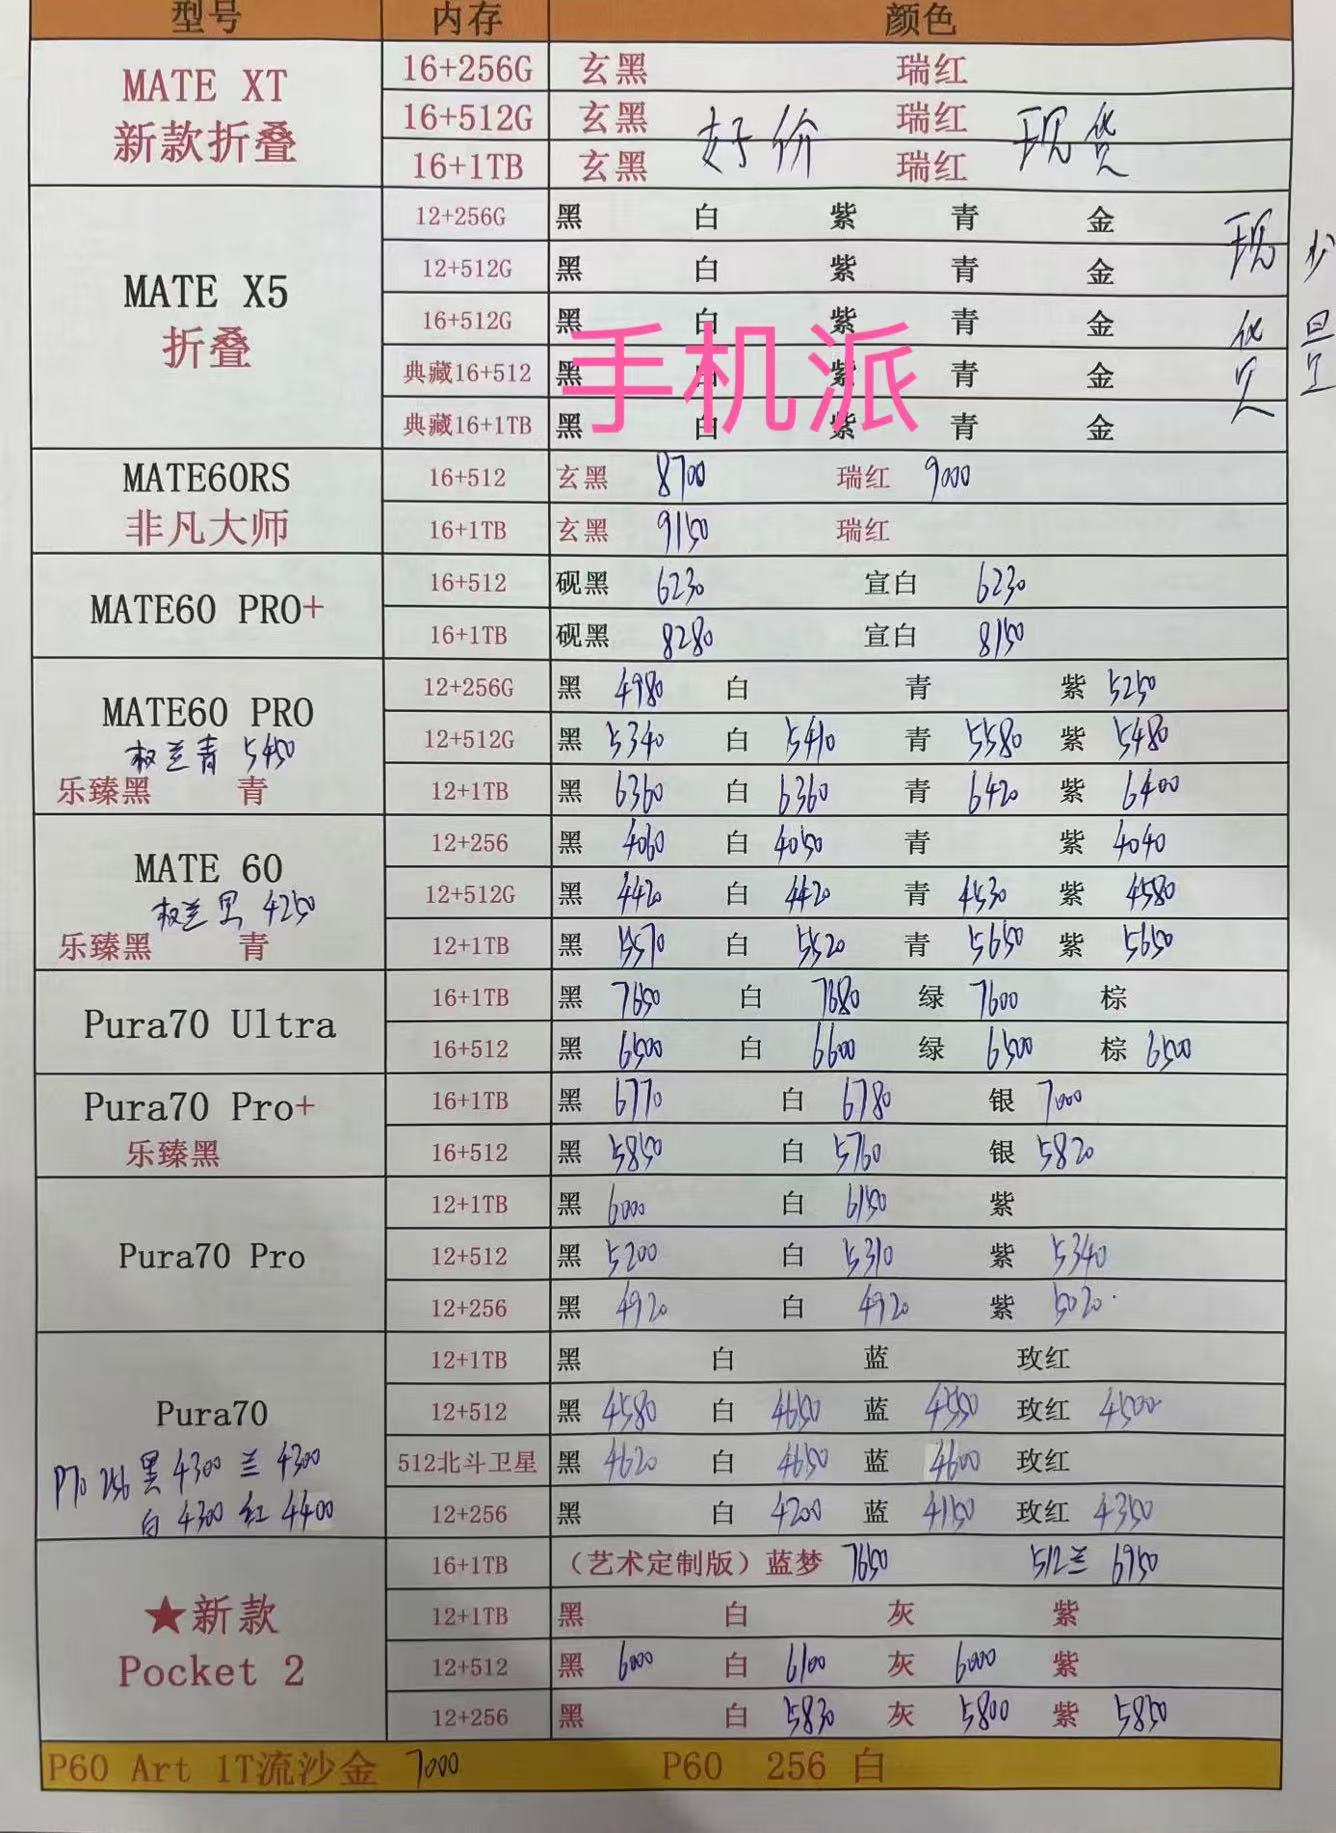 型号 内存 颜色
MATE XT 16+256G 玄黑 瑞红
新款折叠 16+512G 玄黑 好价 瑞红 现货
16+1TB 玄黑 瑞红
12+256G 黑 白 紫 青 金 现货 少量
MATE X5 12+512G 黑 白 紫 青 金
折叠 16+512G 黑 白 紫 青 金
手机派
典藏16+512 黑 白 紫 青 金
典藏16+1TB 黑 白 紫 青 金
MATE60RS 16+512 玄黑 8700 瑞红 9000
非凡大师 16+1TB 玄黑 9150 瑞红
MATE60 PRO+ 16+512 砚黑 6230 宣白 6230
16+1TB 砚黑 8280 宣白 8150
12+256G 黑 4980 白 青 紫 5250
MATE60 PRO 12+512G 黑 5340 白 5410 青 5580 紫 5480
权兰青 5450
乐臻黑 青 12+1TB 黑 6360 白 6360 青 6420 紫 6400
12+256 黑 4060 白 4050 青 紫 4040
MATE 60 12+512G 黑 4420 白 4420 青 4530 紫 4580
权兰黑 4250
乐臻黑 青 12+1TB 黑 5570 白 5520 青 5650 紫 5650
Pura70 Ultra 16+1TB 黑 7650 白 7680 绿 7600 棕
16+512 黑 6500 白 6600 绿 6500 棕 6500
Pura70 Pro+ 16+1TB 黑 6770 白 6780 银 7000
乐臻黑 16+512 黑 5850 白 5760 银 5820
12+1TB 黑 6000 白 6150 紫
Pura70 Pro 12+512 黑 5200 白 5310 紫 5340
12+256 黑 4920 白 4920 紫 5020
12+1TB 黑 白 蓝 玫红
Pura70 12+512 黑 4580 白 4650 蓝 4550 玫红 4500
P70 256 黑 4300 兰 4300 512北斗卫星 黑 4620 白 4650 蓝 4600 玫红
白 4300 红 4400 12+256 黑 白 4200 蓝 4150 玫红 4350
16+1TB （艺术定制版）蓝梦 7650 512兰 6950
★新款 12+1TB 黑 白 灰 紫
Pocket 2 12+512 黑 6000 白 6100 灰 6000 紫
12+256 黑 白 5830 灰 5800 紫 5850
P60 Art 1T流沙金 7000 P60 256 白